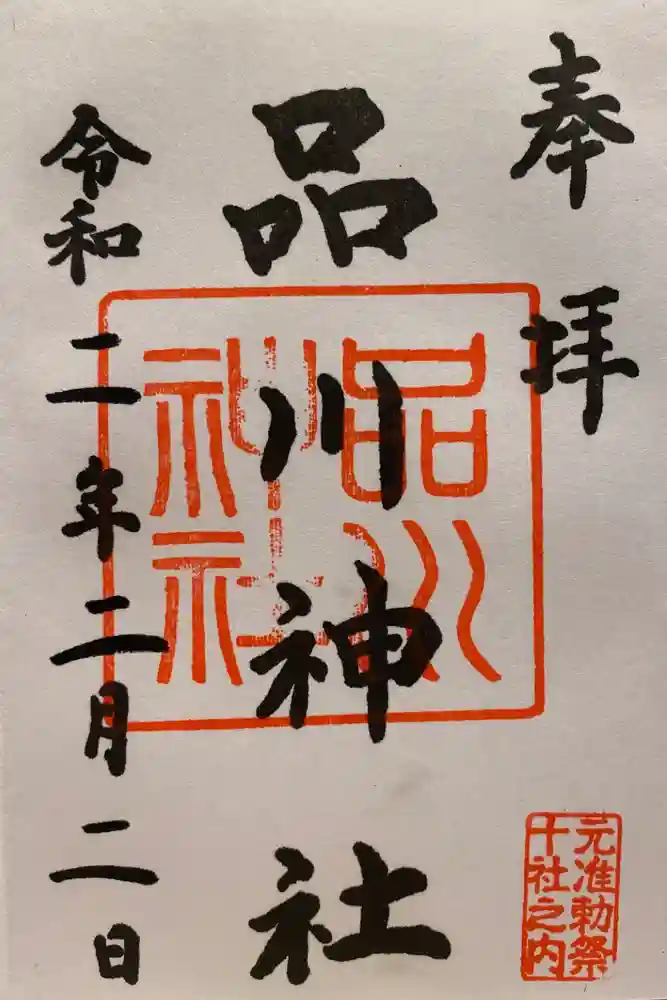 奉拝
品川神社
品川神社
令和二年二月二日
元准勅祭
十社之内